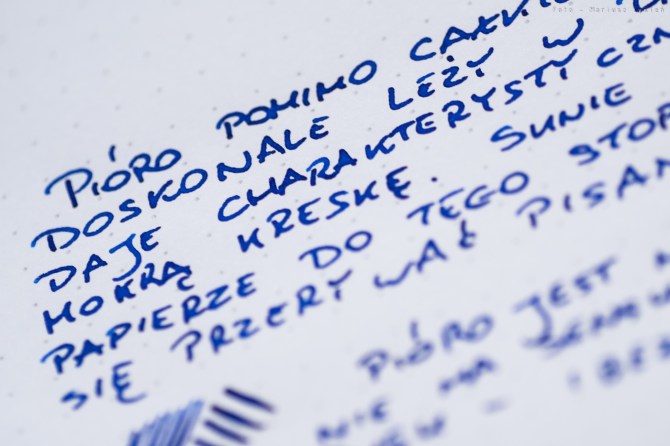 PIÓRO POMIMO
DOSKONALE LEŻY W
DAJE CHARAKTERYSTYCZN
MOKRĄ KRESKĘ. SUNIE
PAPIERZE DO TEGO STOP
SIĘ PRZERYWAĆ PISAN
PIÓRO JEST
NIE MA